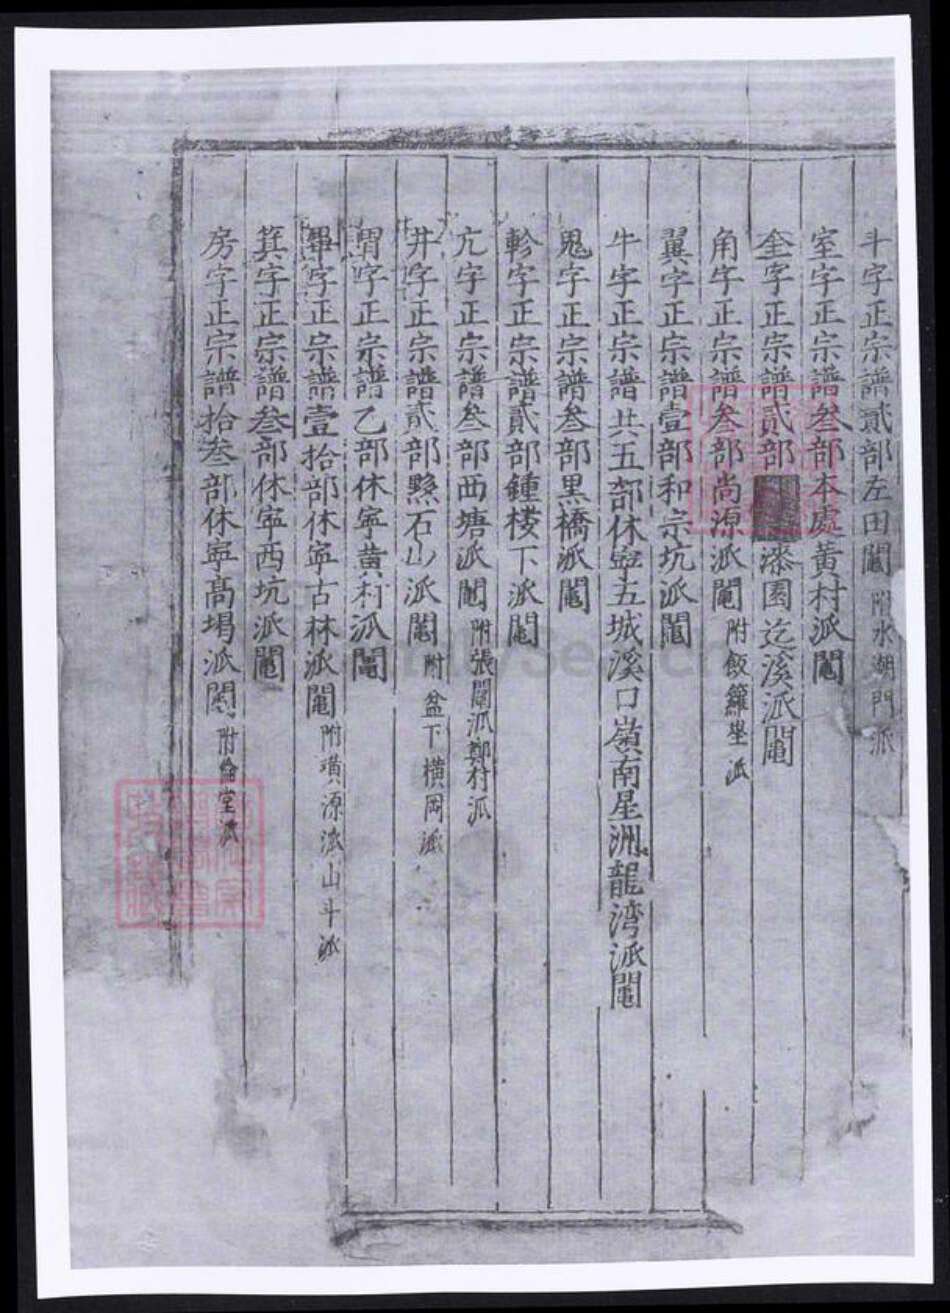 斗字正宗譜貳部左田鬮 附水湖門派
室字正宗譜叁部本處黄村派鬮
奎字正宗譜貳部 漆園迄溪派鬮
角字正宗譜叁部尚源派鬮 附飯籮塋派
翼字正宗譜壹部和宗坑派鬮
牛字正宗譜共五部休寧五城溪口嶺南星洲龍湾派鬮
鬼字正宗譜叁部黒橋派鬮
軫字正宗譜貳部鍾楼下派鬮
亢字正宗譜叁部西塘派鬮 附張閘派鄭村派
井字正宗譜貳部黟石山派鬮 附盆下横岡派
胃字正宗譜乙部休寧黄村派鬮
畢字正宗譜壹拾部休寧古林派鬮 附璜源派山斗派
箕字正宗譜叁部休寧西坑派鬮
房字正宗譜拾叁部休寧髙堨派鬮 附倫堂派